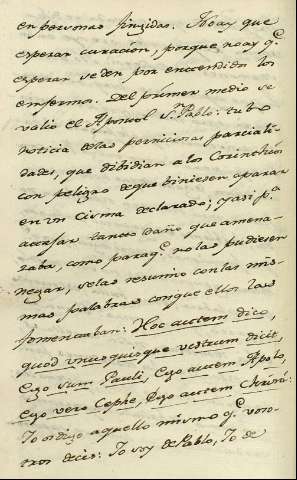 en personas finjidas. No ay que
esperar curacion, porque no ay q.e
esperar se den por encendidos los
enfermos. Del primer medio se
valió el Apostol S.n Pablo: tubo
noticia delas perniciosas parciali-
dades, que dibidian alos Corinthios
con peligro deque biniesen aparar
en un Cisma declarado; yasi p.a
atajar tanto daño que amena-
zaba, como paraq.e no las pudiesen
negar, selas resumio con las mis-
mas palabras conque ellos las
fomentaban: Hoc autem dico,
quod unusquisque vestrum dicit,
Ego sum Pauli, Ego autem Apolo,
Ego vero Cephe, Ego autem Christi:
Yo os digo aquello mismo q.e voso-
tros decis: Yo soy de Pablo, Yo de